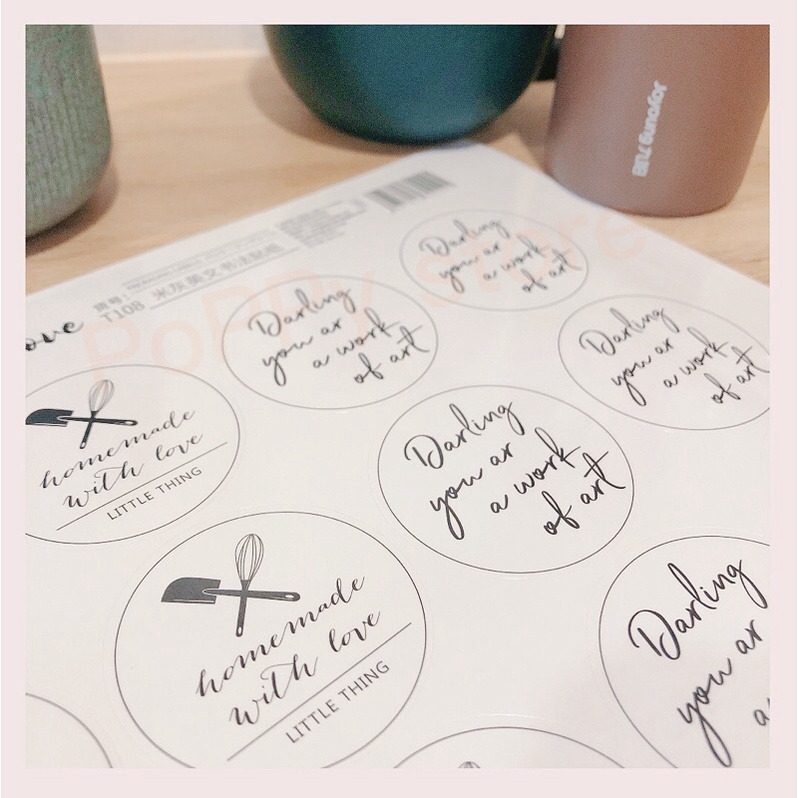 joyoung TUB
货号:
T108 米灰英文书法贴纸
PoPPy store
ove
Darling
you ar
a work
of art
Darling
you ar
a work
of art
Darling
you ar
a work
of art
homemade
with love
LITTLE THING
Darling
you ar
a work
of art
homemade
with love
LITTLE THING
Darling
you ar
a